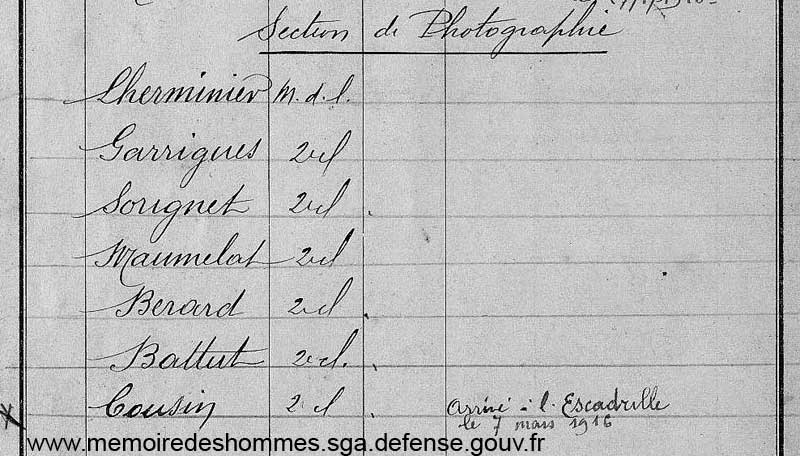 Section de Photographie
Lherminier M.d.l.
Garrigues 2e cl
Sorignet 2e cl
Maumelat 2e cl
Berard 2e cl
Battut 2e cl.
Cousin 2 cl Arrivé à l'Escadrille
le 7 mars 1916
www.memoiredeshommes.sga.defense.gouv.fr